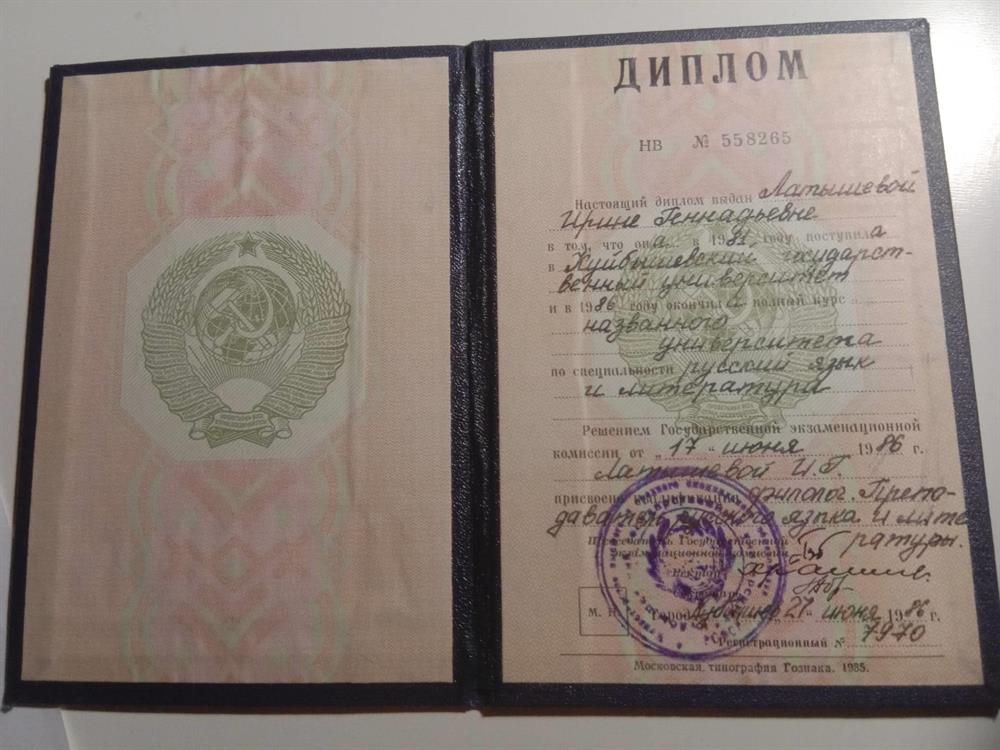 ДИПЛОМ
НВ № 558265
Настоящий диплом выдан Латышевой
Ирине Геннадьевне
в том, что она в 1981 году поступила
в Куйбышевский государст-
венный университет
и в 1986 году окончила полный курс
названного
университета
по специальности русский язык
и литература
Решением Государственной экзаменационной
комиссии от „17“ июня 1986 г.
Латышевой И.Г.
присвоена квалификация филолог. Препо-
даватель русского языка и лите
ратуры.
Председатель Государственной
экзаменационной комиссии
Ректор
Секретарь
М. П. Город Куйбышев 27 июня 1986 г.
Регистрационный № 7970
Московская типография Гознака. 1985.